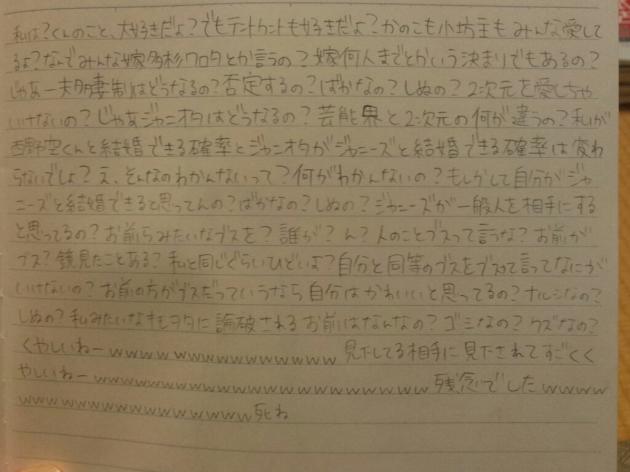 私は?くんのこと、大好きだよ?でもテントカントも好きだよ?かのこも小坊主もみんな愛して
るよ?なんでみんな嫁多杉ワロタとか言うの?嫁何人までとかいう決まりでもあるの?
じゃあ一夫多妻制はどうなるの?否定するの?ばかなの?しぬの?2次元を愛しちゃ
いけないの?じゃあジャニオタはどうなるの?芸能界と2次元の何が違うの?私が
西野空くんと結婚できる確率とジャニオタがジャニーズと結婚できる確率は変わ
らないでしょ?え、そんなのわかんないって?何がわかんないの?もしかして自分がジャ
ニーズと結婚できると思ってんの?ばかなの?しぬの?ジャニーズが一般人を相手にする
と思ってるの?お前らみたいなブスを?誰が?ん?人のことブスって言うな?お前が
ブス?鏡見たことある?私と同じぐらいひどいよ?自分と同等のブスをブスって言ってなにが
いけないの?お前の方がブスだっていうなら自分はかわいいと思ってるの?ナルシなの?
しぬの?私みたいなキモヲタに論破されるお前はなんなの?ゴミなの?クズなの?
くやしいねーwwwwwwwwwwwwwww見下してる相手に見下されてすごくく
やしいねーwwwwwwwwwwwwwwwwwwww残念でしたwwww
wwwwwwwwwwwwwww死ね